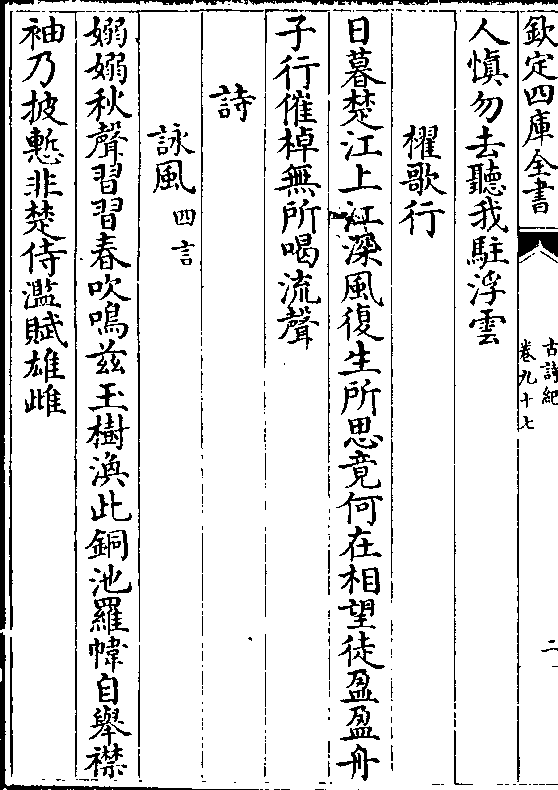 欽定四庫全書
古詩紀
卷九十七
二
人慎勿去聽我駐浮雲
櫂歌行
日暮楚江上江深風復生所思竟何在相望徒盈盈舟
子行催棹無所喝流聲
詩
詠風四言
嫋嫋秋聲習習春吹鳴兹玉樹渙此銅池羅幃自舉襟
袖乃披慙非楚侍濫賦雄雌